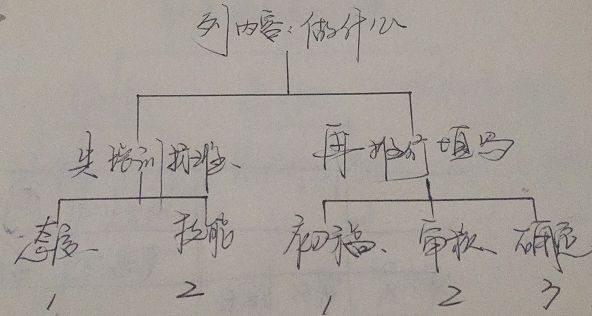 列内容:做什么
先培训标准、 再推行填写
态度、 技能 初稿、 审核、 确定
1 2 1 2 3